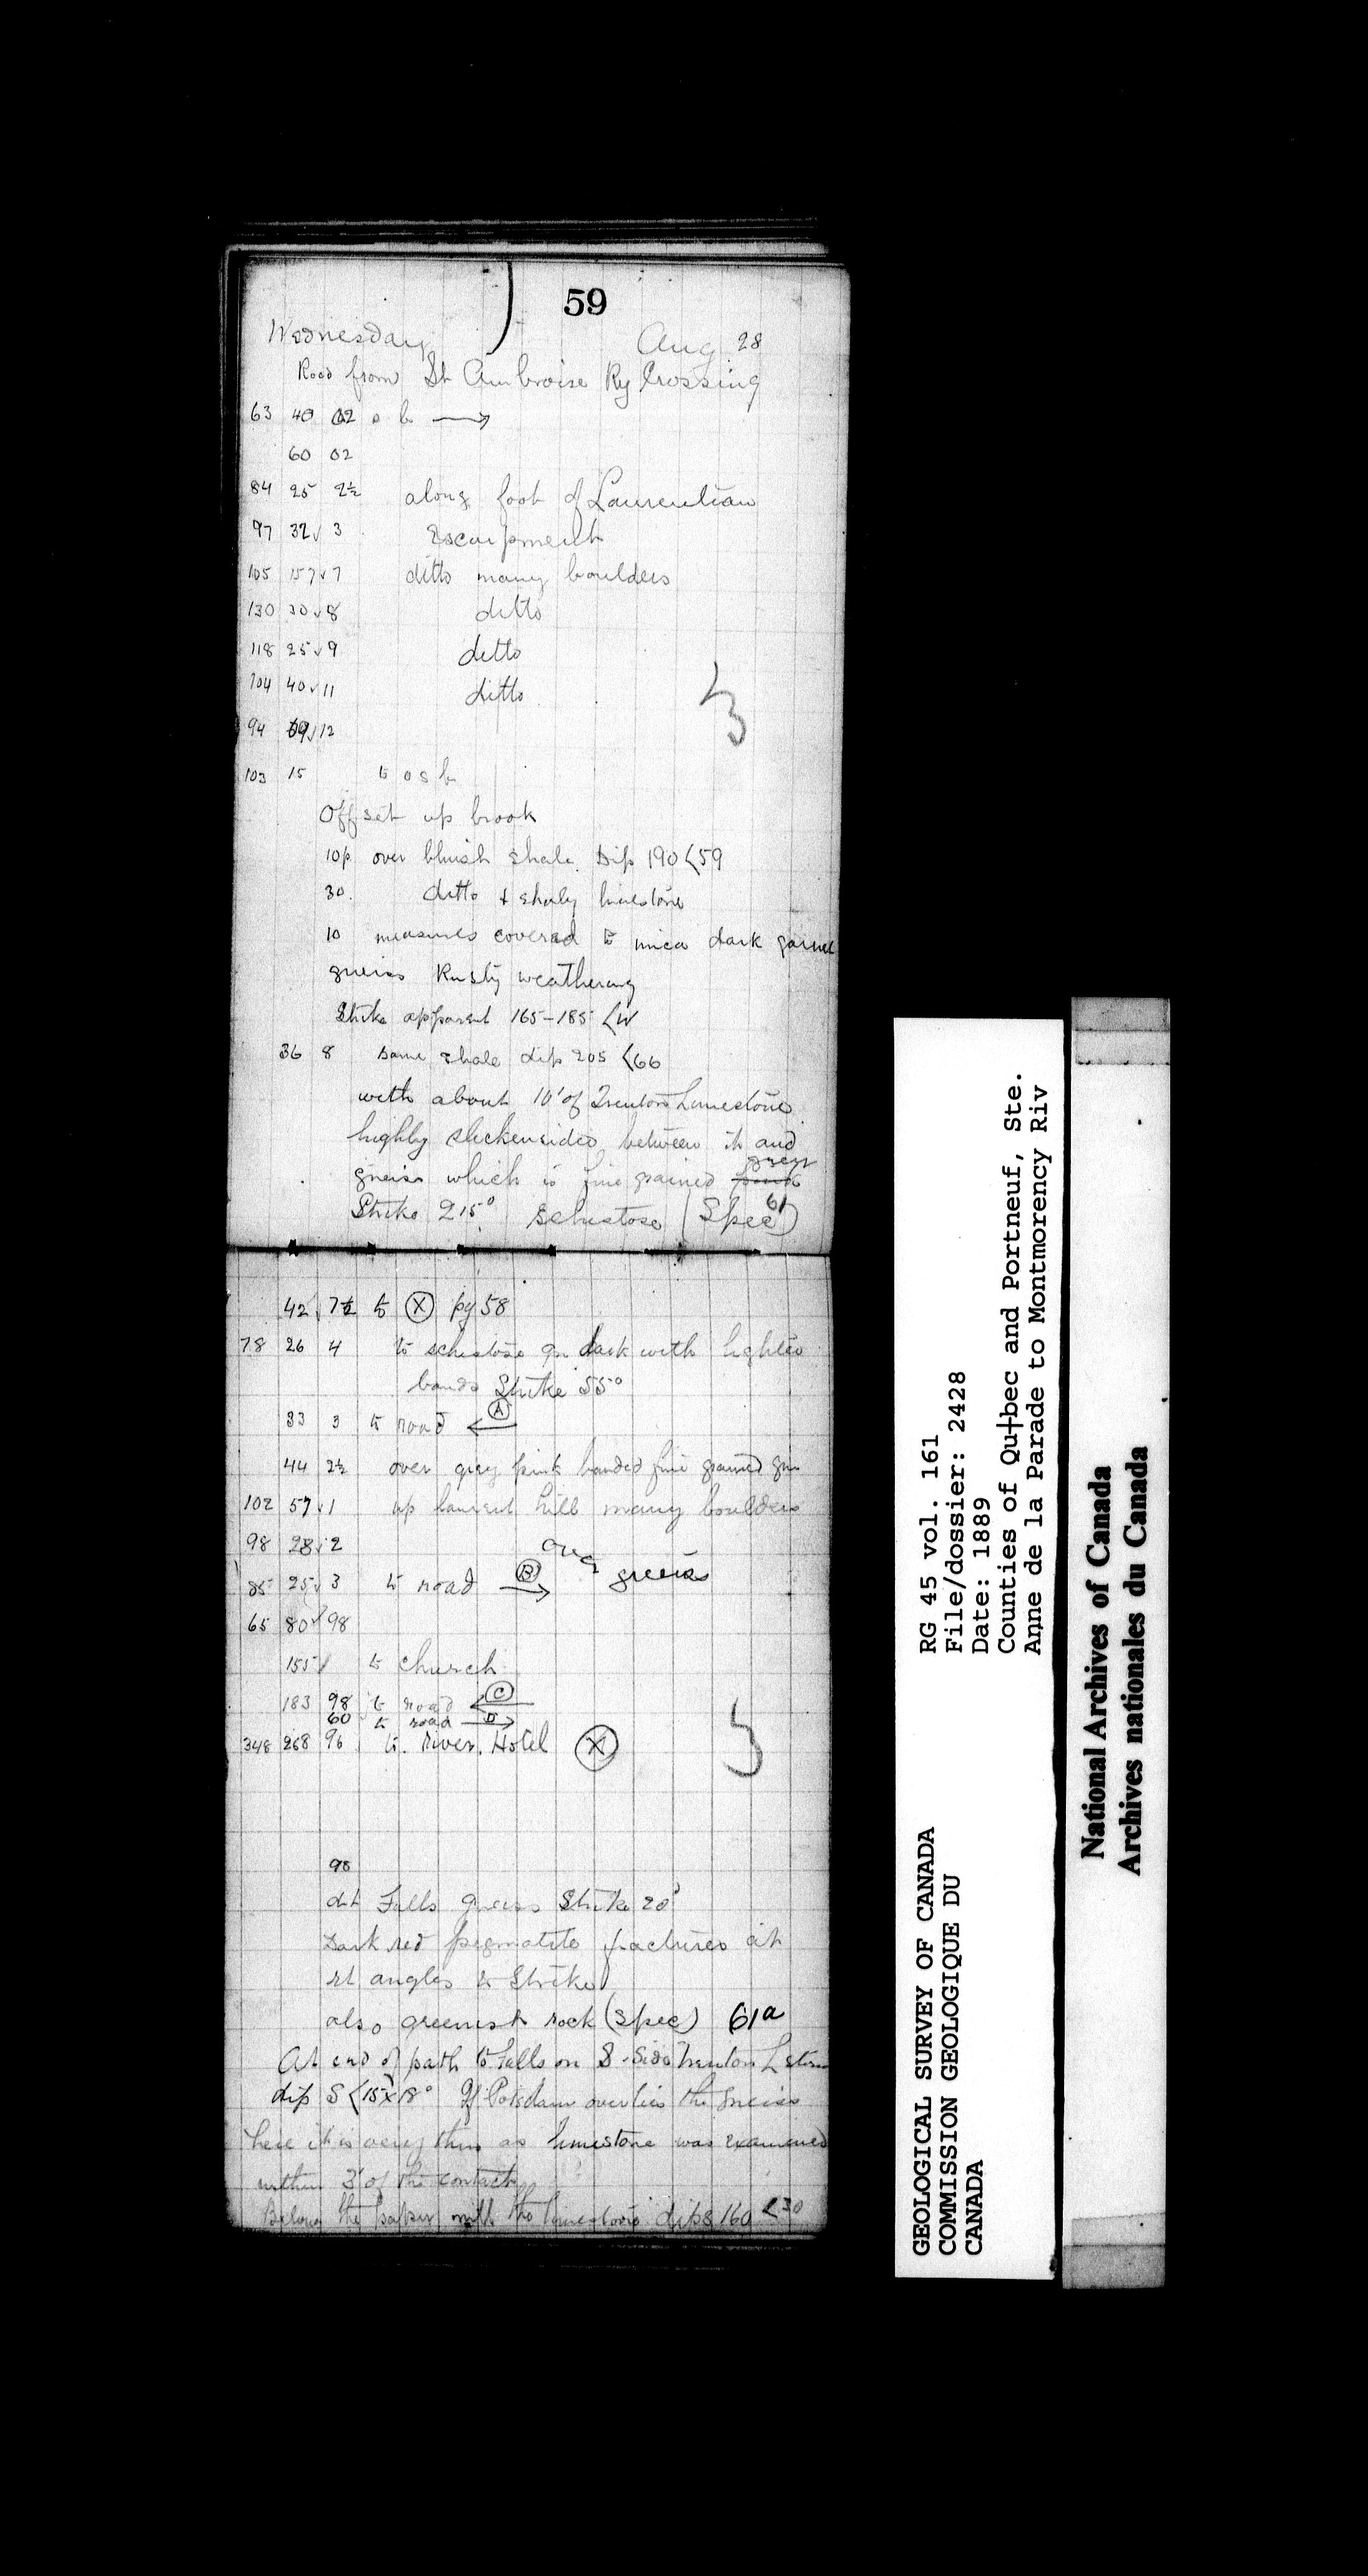 59
Wednesday Aug 28
Road from St Ambroise Ry Crossing
63 40 02 o b →
60 02
84 25 2½ along foot of Laurentian
97 32 3 Escarpment
105 157 7 ditto many boulders
130 30 8 ditto
118 25 9 ditto
104 40 11 ditto
94 12
103 15 to o s b
Offset up brook
10p over bluish shale. Dip 190 <59
30. ditto & shaly limestone
10 measures covered to mica dark garnet
gneiss Rusty weathering
Strike apparent 165-185 <W
36 8 same shale dip 205 <66
with about 10' of Trenton Limestone
highly slickensided between it and
grey
gneiss which is fine grained
Strike 215° schistose (Spec 61)
42 7½ to Ⓧ pg 58
78 26 4 to schistose gn dark with lighter
bands Strike 55°
33 3 to road ← Ⓐ
44 2½ over grey pink banded fine grained gn
102 57 1 up Laurent hill many boulders
98 28 2 over
85 25 3 to road Ⓑ → gneiss
65 80 98
155 to church
183 98 to road ← Ⓒ
60 to road D →
348 268 96 to River. Hotel Ⓧ
98
at Falls gneiss Strike 20°
Dark red pegmatite fractures at
rt angles to Strike
also greenish rock (Spec) 61a
At end of path to Falls on S. Side Trenton Lstone
dip S <15 x 18° If Potsdam overlies the gneiss
here it is very thin as limestone was examined
within 3' of the contact
Below the paper mill the limestone dips 160 <30
RG 45 vol. 161
File/dossier: 2428
Date: 1889
Counties of Qu┼bec and Portneuf, Ste.
Anne de la Parade to Montmorency Riv
GEOLOGICAL SURVEY OF CANADA
COMMISSION GEOLOGIQUE DU
CANADA
National Archives of Canada
Archives nationales du Canada